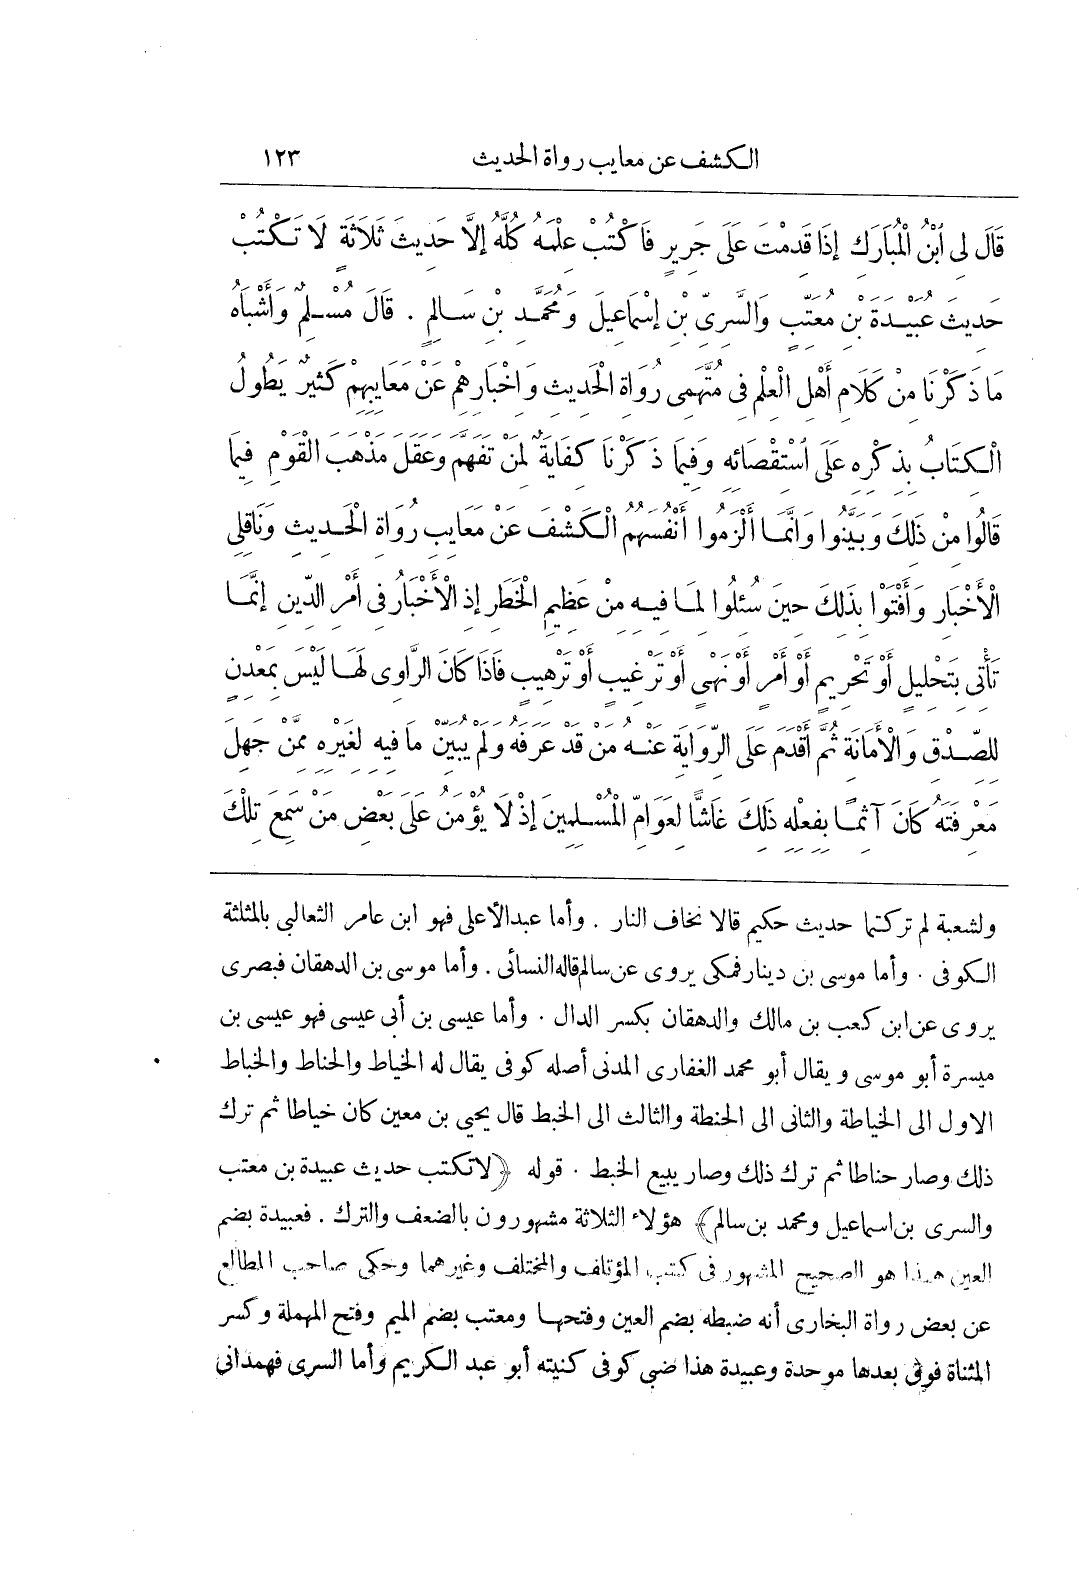 الكشف عن معايب رواة الحديث ١٢٣
قَالَ لِى ابْنُ الْمُبَارَكِ إِذَا قَدِمْتَ عَلَى جَرِيرٍ فَاكْتُبْ عِلْمَهُ كُلَّهُ إِلَّا حَدِيثَ ثَلَاثَةٍ لَا تَكْتُبْ
حَدِيثَ عُبَيْدَةَ بْنِ مُعَتِّبٍ وَالسَّرِىِّ بْنِ إِسْمَاعِيلَ وَمُحَمَّدِ بْنِ سَالِمٍ . قَالَ مُسْلِمٌ وَأَشْبَاهُ
مَا ذَكَرْنَا مِنْ كَلَامِ أَهْلِ الْعِلْمِ فِى مُتَّهَمِى رُوَاةِ الْحَدِيثِ وَإِخْبَارِهِمْ عَنْ مَعَايِبِهِمْ كَثِيرٌ يَطُولُ
الْكِتَابُ بِذِكْرِهِ عَلَى اسْتِقْصَائِهِ وَفِيمَا ذَكَرْنَا كِفَايَةٌ لِمَنْ تَفَهَّمَ وَعَقَلَ مَذْهَبَ الْقَوْمِ فِيمَا
قَالُوا مِنْ ذَلِكَ وَبَيَّنُوا وَإِنَّمَا أَلْزَمُوا أَنْفُسَهُمُ الْكَشْفَ عَنْ مَعَايِبِ رُوَاةِ الْحَدِيثِ وَنَاقِلِى
الْأَخْبَارِ وَأَفْتَوْا بِذَلِكَ حِينَ سُئِلُوا لِمَا فِيهِ مِنْ عَظِيمِ الْخَطَرِ إِذِ الْأَخْبَارُ فِى أَمْرِ الدِّينِ إِنَّمَا
تَأْتِى بِتَحْلِيلٍ أَوْ تَحْرِيمٍ أَوْ أَمْرٍ أَوْ نَهْىٍ أَوْ تَرْغِيبٍ أَوْ تَرْهِيبٍ فَإِذَا كَانَ الرَّاوِى لَهَا لَيْسَ بِمَعْدِنٍ
لِلصِّدْقِ وَالْأَمَانَةِ ثُمَّ أَقْدَمَ عَلَى الرِّوَايَةِ عَنْهُ مَنْ قَدْ عَرَفَهُ وَلَمْ يُبَيِّنْ مَا فِيهِ لِغَيْرِهِ مِمَّنْ جَهِلَ
مَعْرِفَتَهُ كَانَ آثِمًا بِفِعْلِهِ ذَلِكَ غَاشًّا لِعَوَامِّ الْمُسْلِمِينَ إِذْ لَا يُؤْمَنُ عَلَى بَعْضِ مَنْ سَمِعَ تِلْكَ
ولشعبة لم تركتما حديث حكيم قالا نخاف النار . وأما عبدالأعلى فهو ابن عامر الثعالبى بالمثلثة
الكوفى . وأما موسى بن دينار فمكى يروى عن سالم قاله النسائى . وأما موسى بن الدهقان فبصرى
يروى عن ابن كعب بن مالك والدهقان بكسر الدال . وأما عيسى بن أبى عيسى فهو عيسى بن
ميسرة أبو موسى ويقال أبو محمد الغفارى المدنى أصله كوفى يقال له الخياط والحناط والخباط
الاول الى الخياطة والثانى الى الحنطة والثالث الى الخبط قال يحيى بن معين كان خياطا ثم ترك
ذلك وصار حناطا ثم ترك ذلك وصار يبيع الخبط . قوله ﴿لا تكتب حديث عبيدة بن معتب
والسرى بن اسماعيل ومحمد بن سالم﴾ هؤلاء الثلاثة مشهورون بالضعف والترك . فعبيدة بضم
العين هذا هو الصحيح المشهور فى كتب المؤتلف والمختلف وغيرهما وحكى صاحب المطالع
عن بعض رواة البخارى أنه ضبطه بضم العين وفتحها ومعتب بضم الميم وفتح المهملة وكسر
المثناة فوق بعدها موحدة وعبيدة هذا ضبى كوفى كنيته أبو عبد الكريم وأما السرى فهمدانى